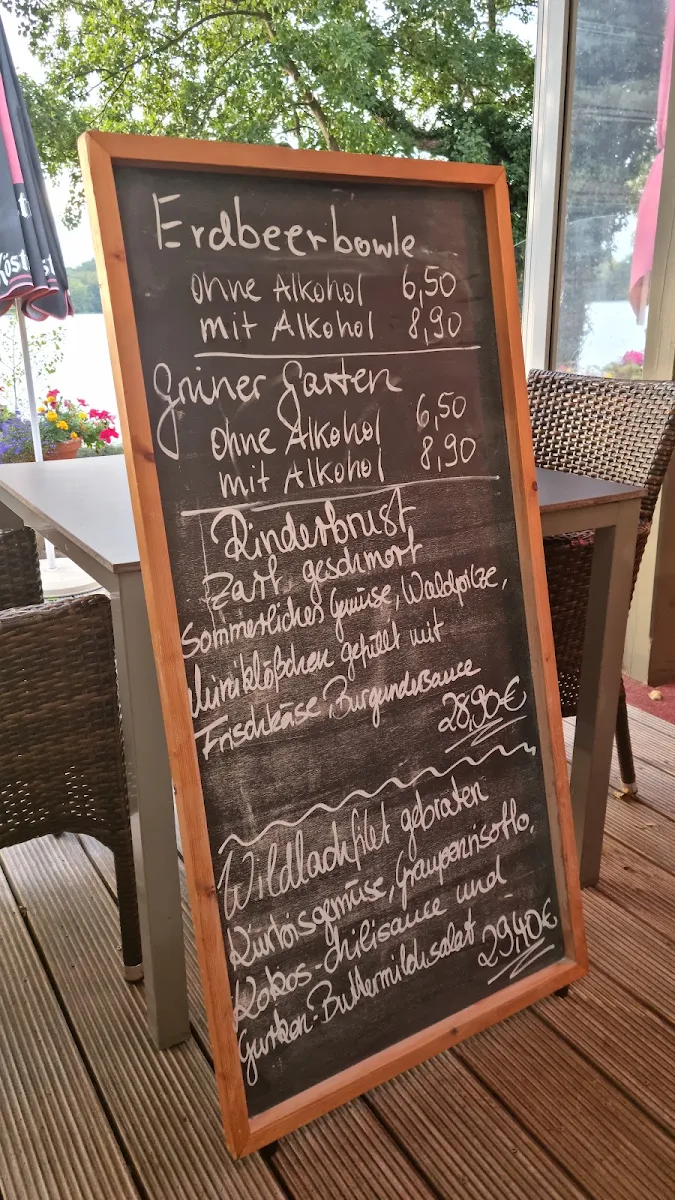 Erdbeerbowle
ohne Alkohol 6,50
mit Alkohol 8,90
Grüner Garten
ohne Alkohol 6,50
mit Alkohol 8,90
Rinderbrust
Zart geschmort
Sommerliches Gemüse, Waldpilze,
Miniklößchen gefüllt mit
Frischkäse, Burgundersauce
28,90€
Wildlachsfilet gebraten
Kürbisgemüse, Graupenrisotto,
Kokos-Chilisauce und
Gurken-Buttermilchsalat 29,40€